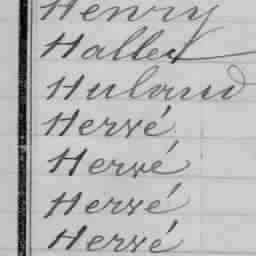 Henry
Halley
Huland
Hervé
Hervé
Hervé
Hervé